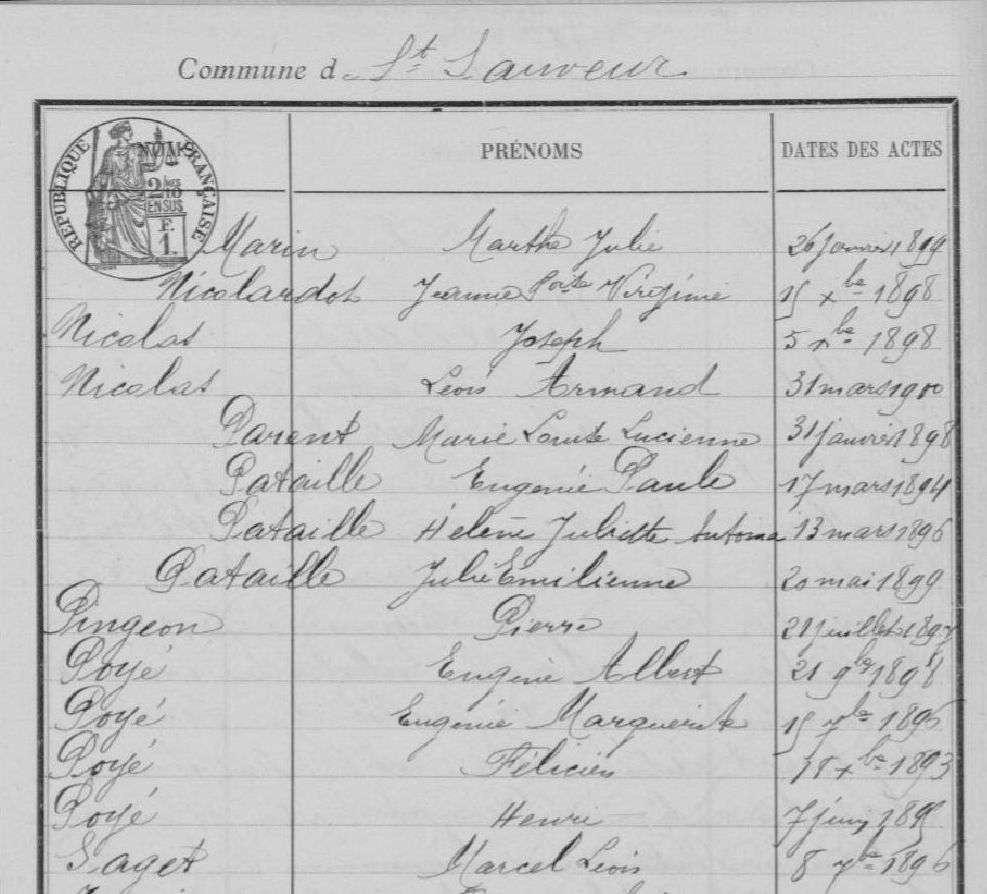 Commune d St Sauveur
RÉPUBLIQUE FRANÇAISE
NOMS PRÉNOMS DATES DES ACTES
2/10es
EN SUS
F.
1
Marin Marthe Julie 26 janvier 1899
Nicolardot Jeanne Virginie 15 xbre 1898
Nicolas Joseph 5 xbre 1898
Nicolas Léon Armand 31 mars 1900
Parent Marie Louise Lucienne 31 janvier 1898
Pataille Eugénie Paule 17 mars 1894
Pataille Hélène Juliette Antoine 13 mars 1896
Pataille Julie Emilienne 20 mai 1899
Pingeon Pierre 21 juillet 1897
Poyé Eugène Albert 21 9bre 1898
Poyé Eugénie Marguerite 15 7bre 1895
Poyé Félicien xbre 1893
Poyé Henri 7 juin 1895
Saget Marcel Léon 8 7bre 1896